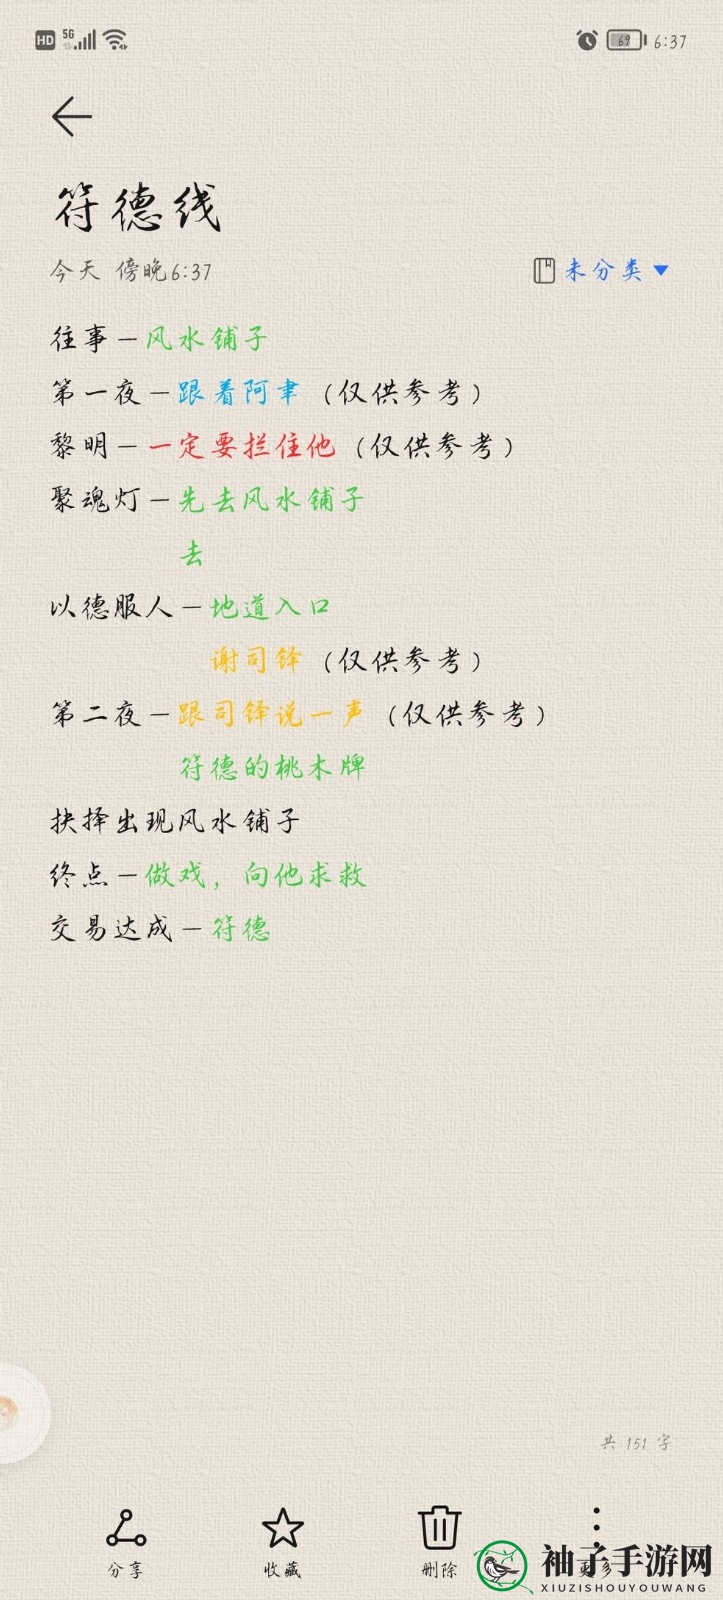 HD 5G 69 6:37
符德线
今天 傍晚6:37 未分类
往事—风水铺子
第一夜—跟着阿聿（仅供参考）
黎明—一定要拦住他（仅供参考）
聚魂灯—先去风水铺子
去
以德服人—地道入口
谢司铎（仅供参考）
第二夜—跟司铎说一声（仅供参考）
符德的桃木牌
抉择出现风水铺子
终点—做戏，向他求救
交易达成—符德
共 151 字
分享 收藏 删除 更多
袖子手游网
XIUZISHOUYOUWANG